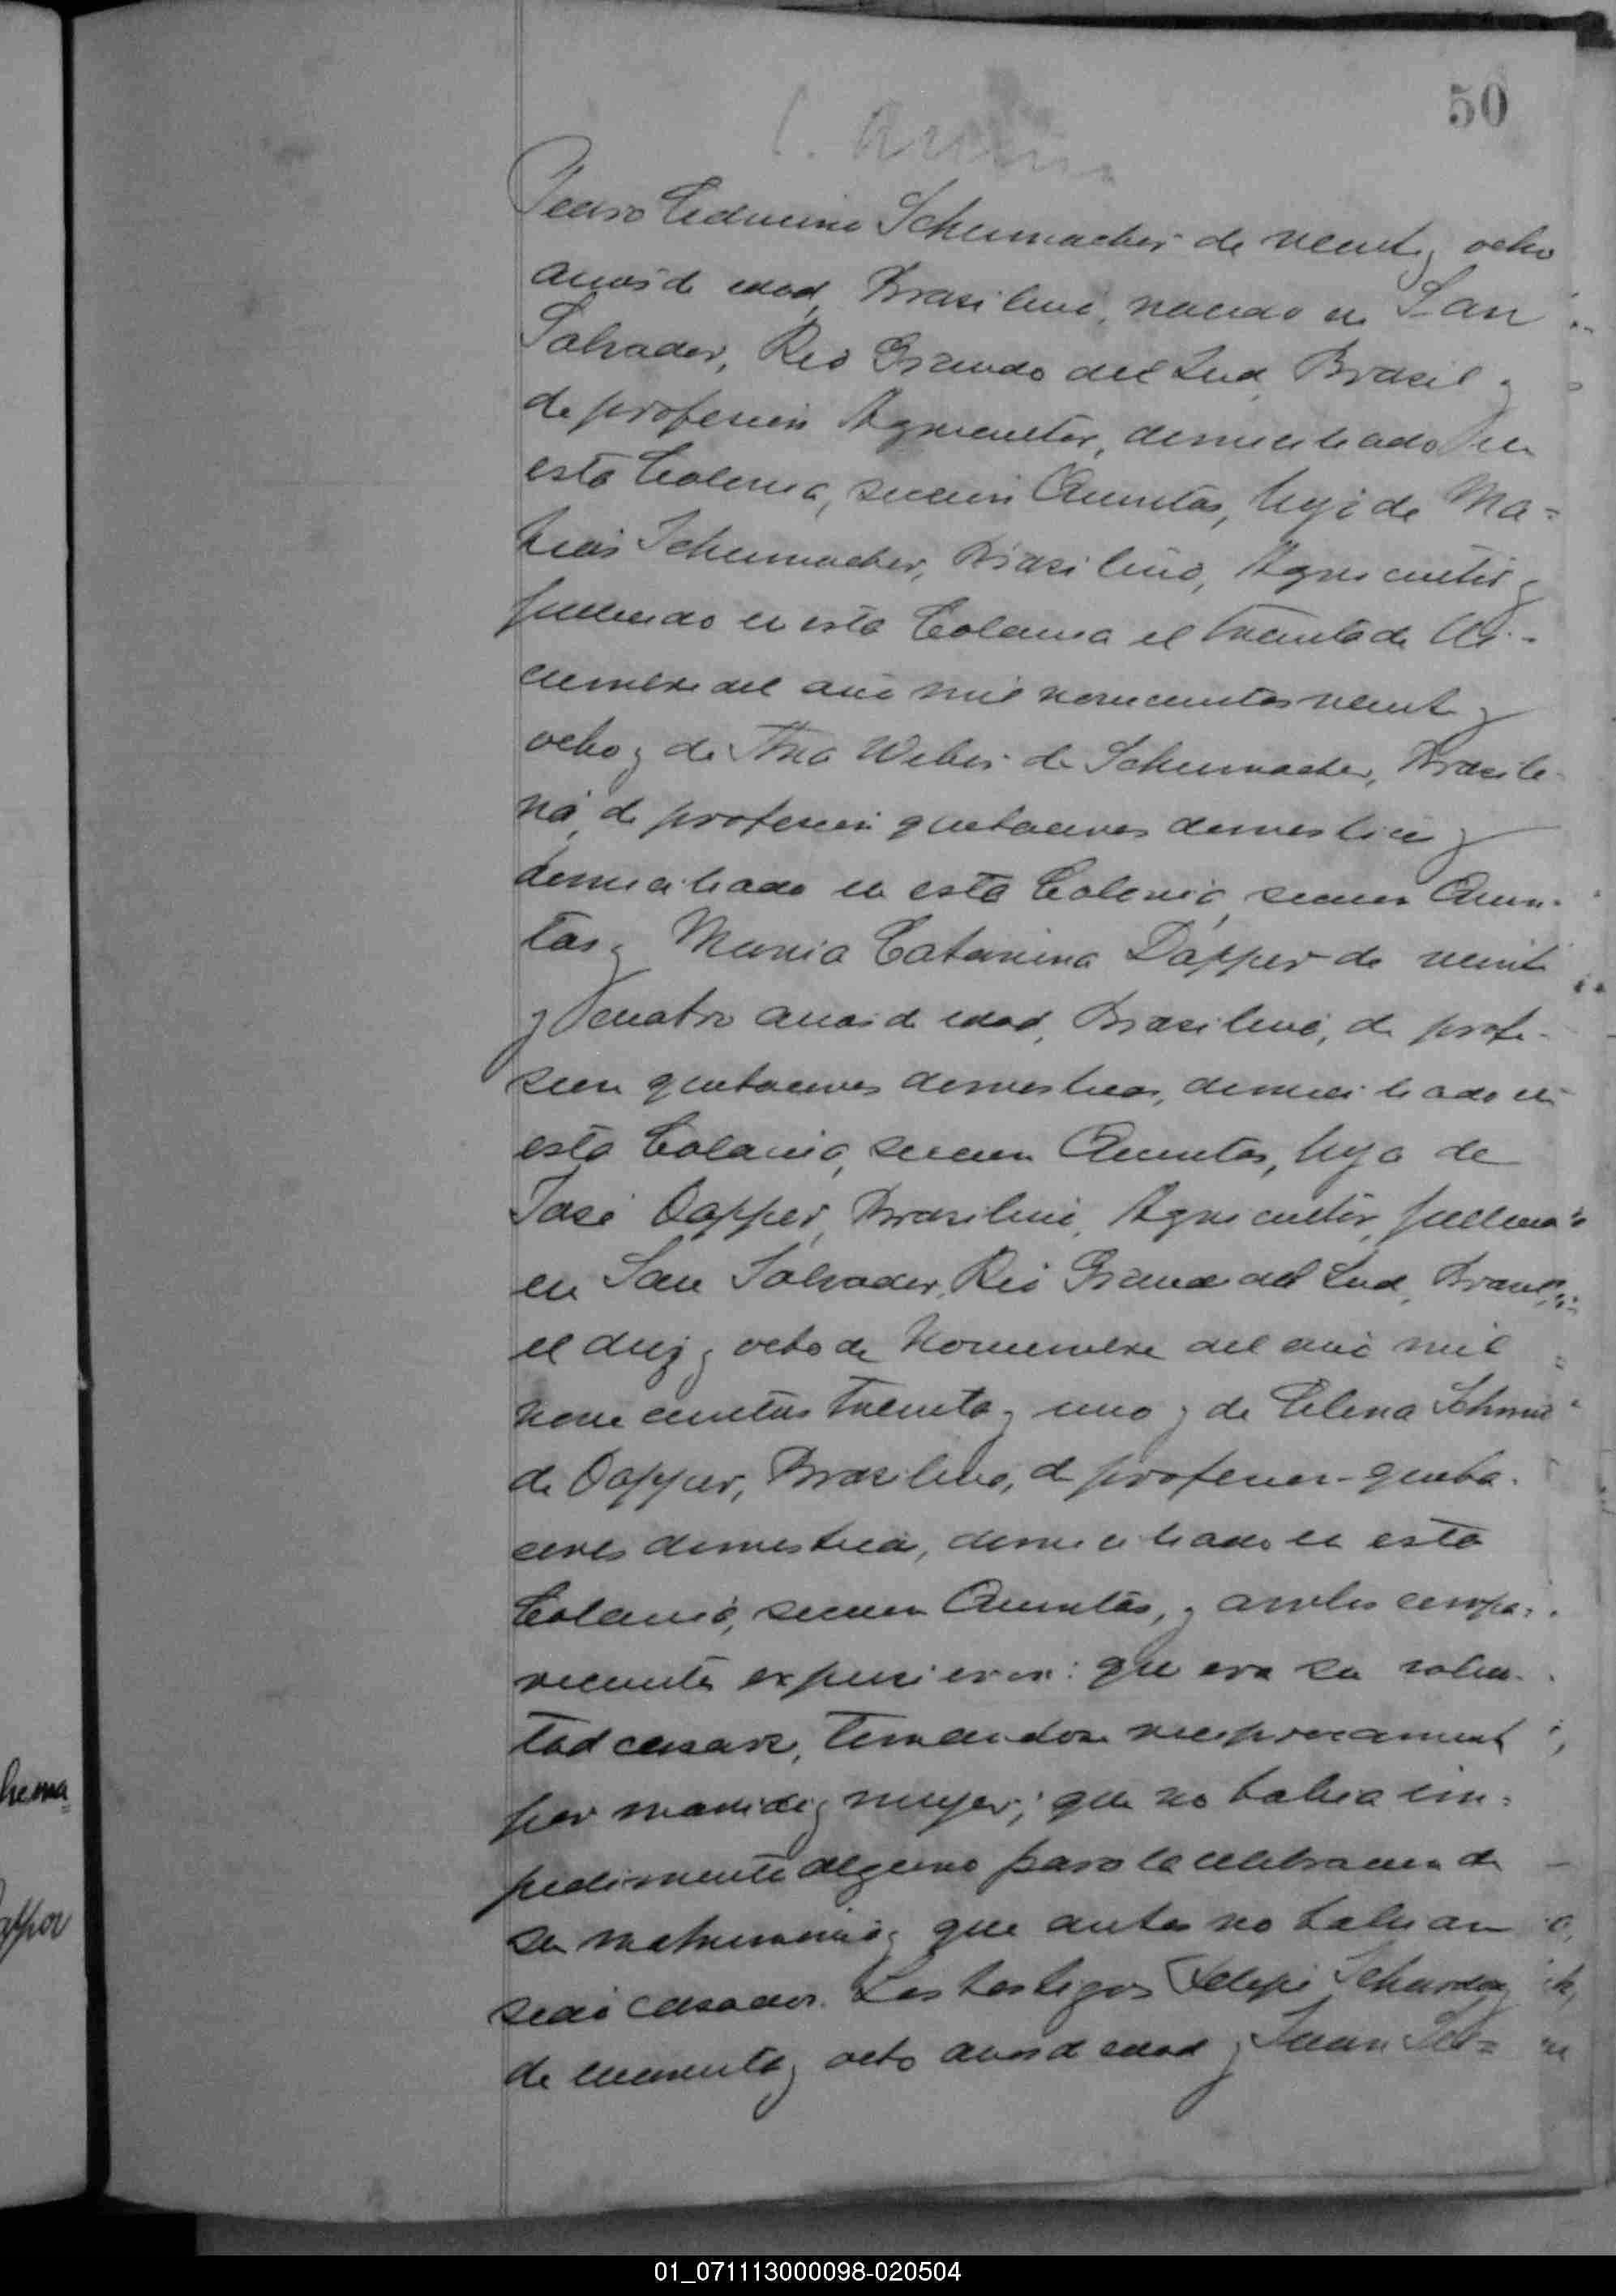 50
Pedro Edmino Schumacher de veinte y ocho
anos de edad, Brasilino, nacido en San
Salvador, Rio Grande del Sud, Brasil y
de profesion Agricultor, domiciliado en
esta Colonia, seccion Cuentas, hijo de Ma=
tias Schumacher, Brasilino, Agricultor y
fallecido en esta Colonia el treinta de Di-
ciembre del año mil novecientos veinte y
ocho y de Ana Weber de Schumacher, Brasile-
na, de profesion quehaceres domesticos y
domiciliado en esta Colonia seccion Cuen-
tas y Maria Catarina Dapper de veinte
y cuatro anos de edad, Brasilina, de profe-
sion quehaceres domesticos, domiciliado en
esta Colonia, seccion Cuentas, hija de
José Dapper, Brasilino, Agricultor, fallecido
en San Salvador, Rio Grande del Sud, Brasil,
el diez y ocho de Noviembre del año mil
novecientos treinta y uno y de Elena
de Dapper, Brasilina, de profesion queha-
ceres domesticos, domiciliado en esta
Colonia, seccion Cuentas, y ambos compa-
recientes expusieron: que era su volun-
tad casarse, tomandose reciprocamente
por marido y mujer; que no habia im-
pedimento alguno para la celebracion de
su matrimonio y que antes no habian
sido casados. Los testigos Felipe
de cincuenta y ocho anos de edad y Juan
01_071113000098-020504